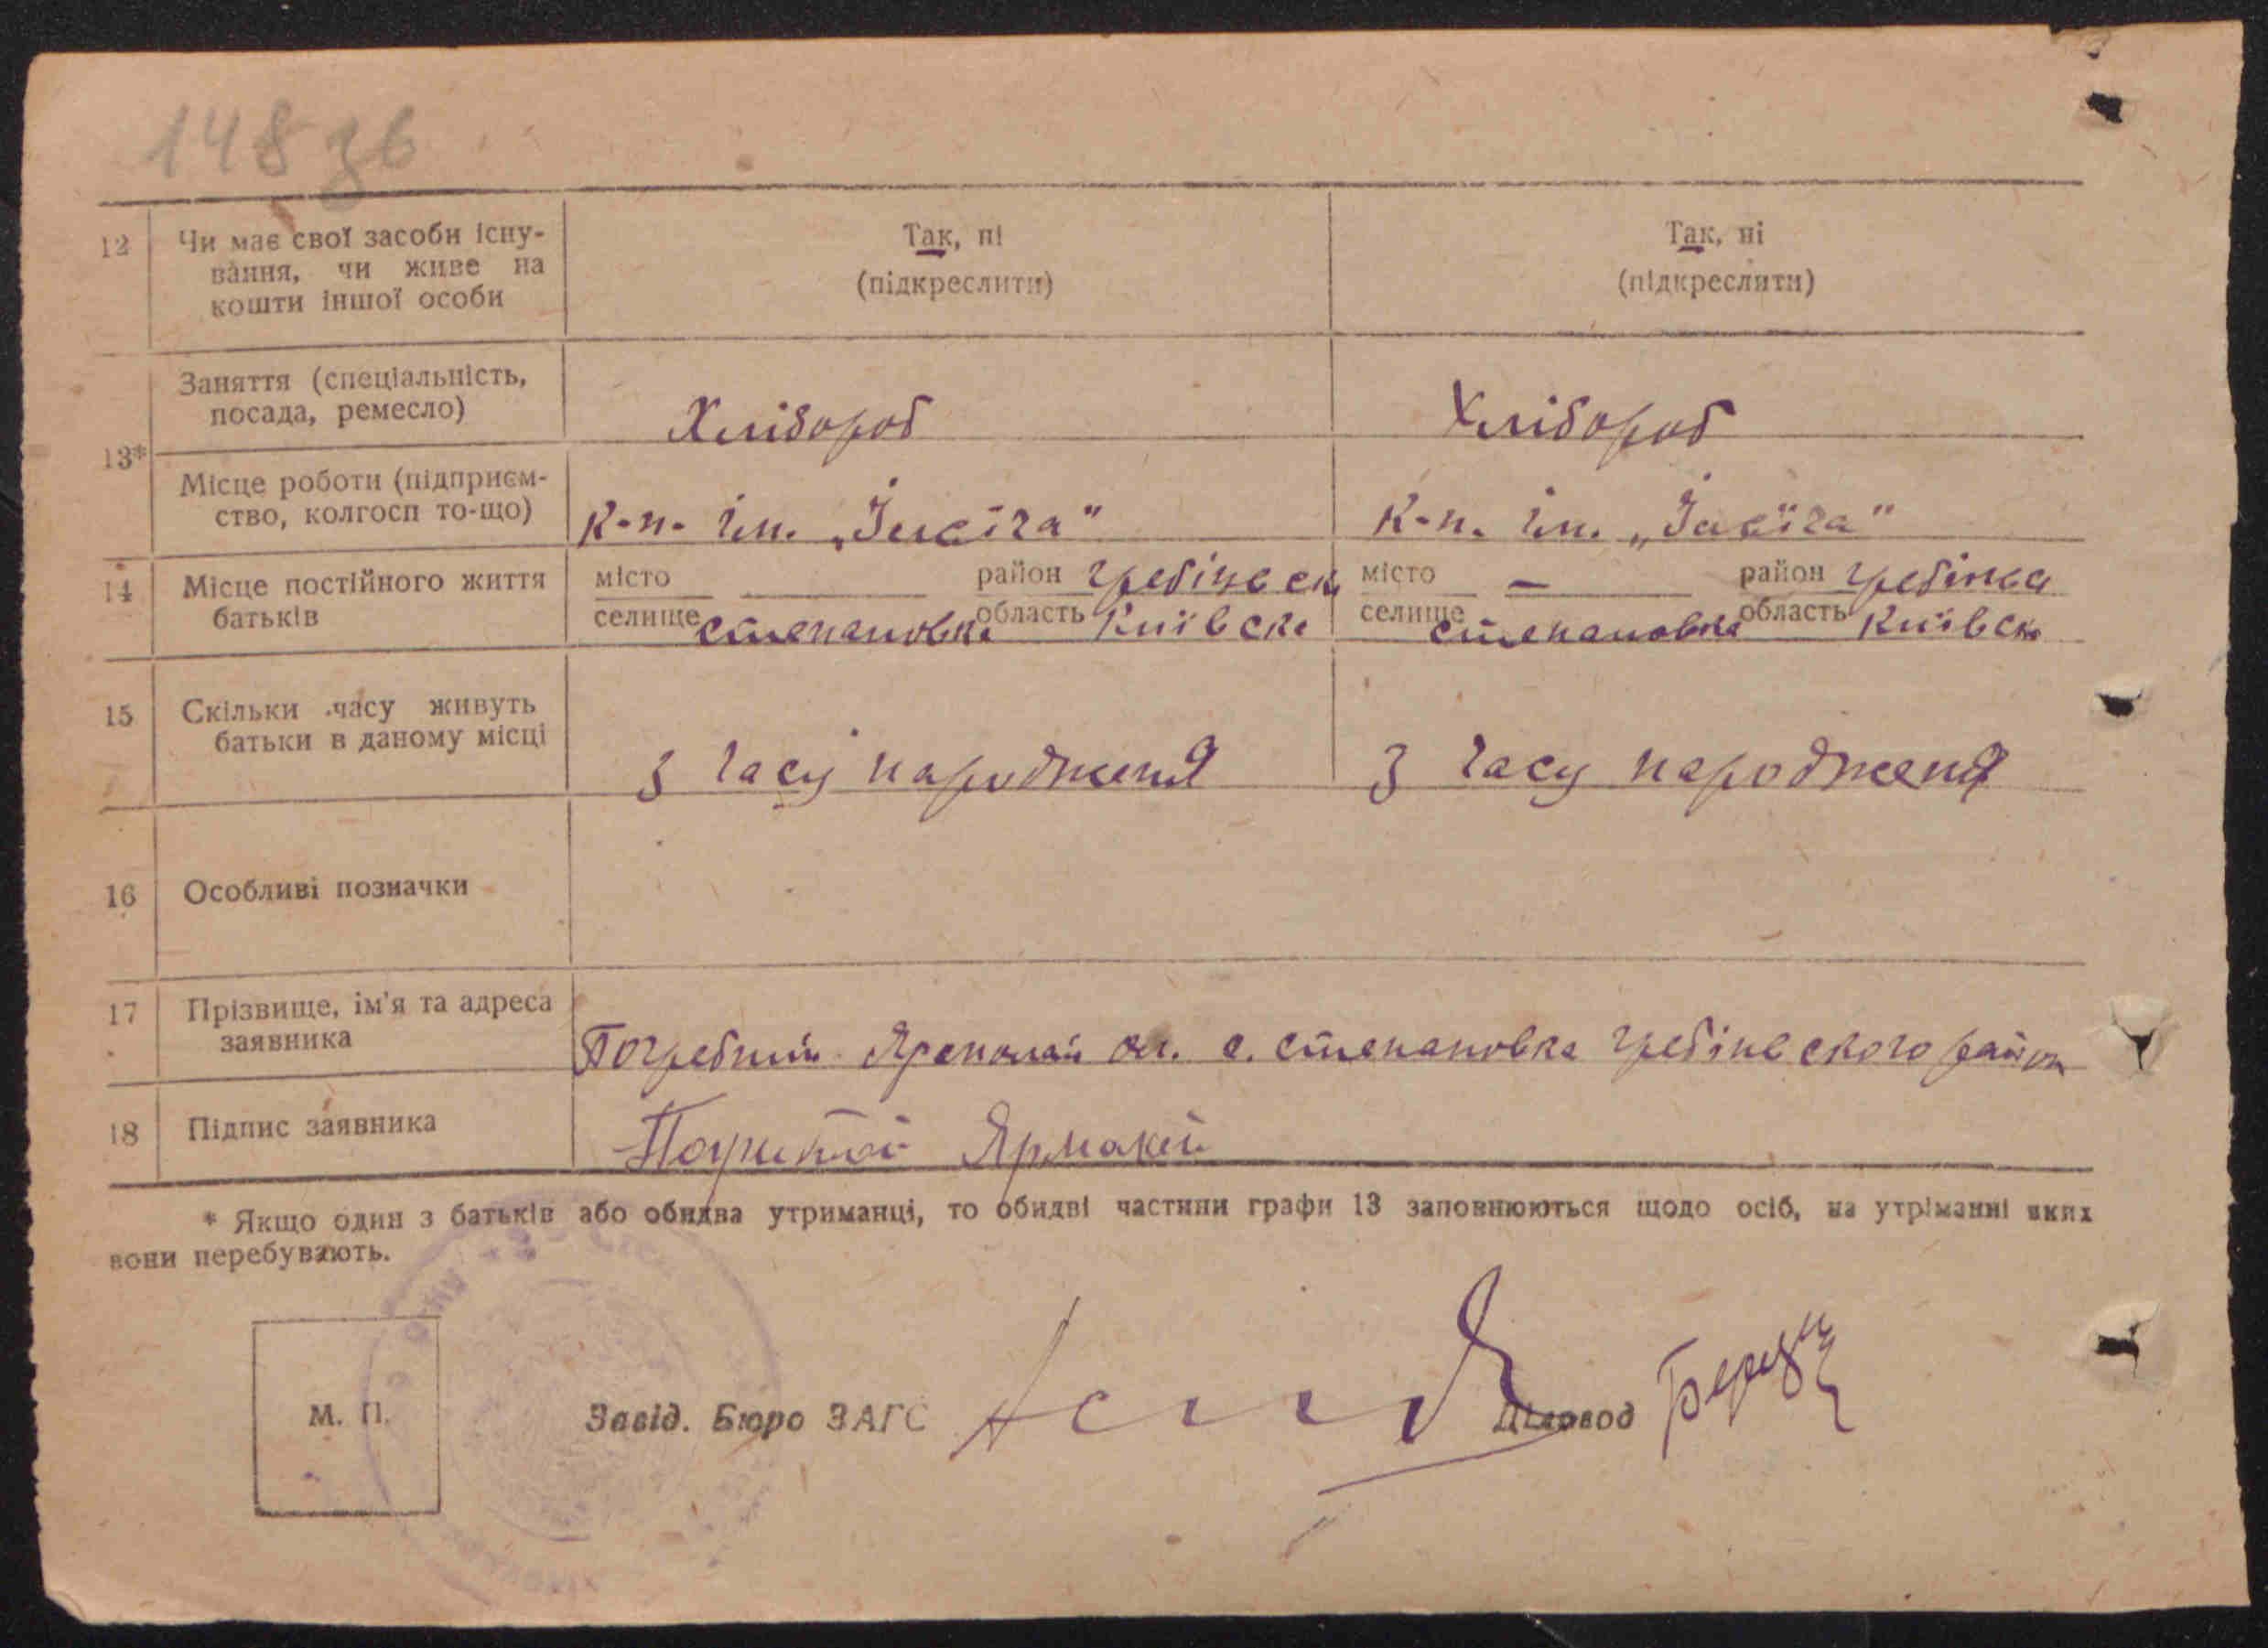 148 зв
12 Чи має свої засоби існу-
вання, чи живе на
кошти іншої особи
Так, ні
(підкреслити)
Так, ні
(підкреслити)
13*
Заняття (спеціальність,
посада, ремесло)
Хлібороб
Хлібороб
Місце роботи (підприєм-
ство, колгосп то-що)
К-п. Ім. „Ілліча"
К-п. Ім. „Ілліча"
14 Місце постійного життя
батьків
місто — район Гребінвськ
селище степановка область Київска
місто — район Гребінка
селище степановка область Київськ
15 Скільки часу живуть
батьки в даному місці
З часу народженя
З часу народженя
16 Особливі позначки
17 Прізвище, ім'я та адреса
заявника
Погребний с. степановка Гребінвского район
18 Підпис заявника
Ярмолай
* Якщо один з батьків або обидва утриманці, то обидві частини графи 13 заповнюються щодо осіб, на утріманні яких
вони перебувають.
М. П.
Завід. Бюро ЗАГС
Діловод